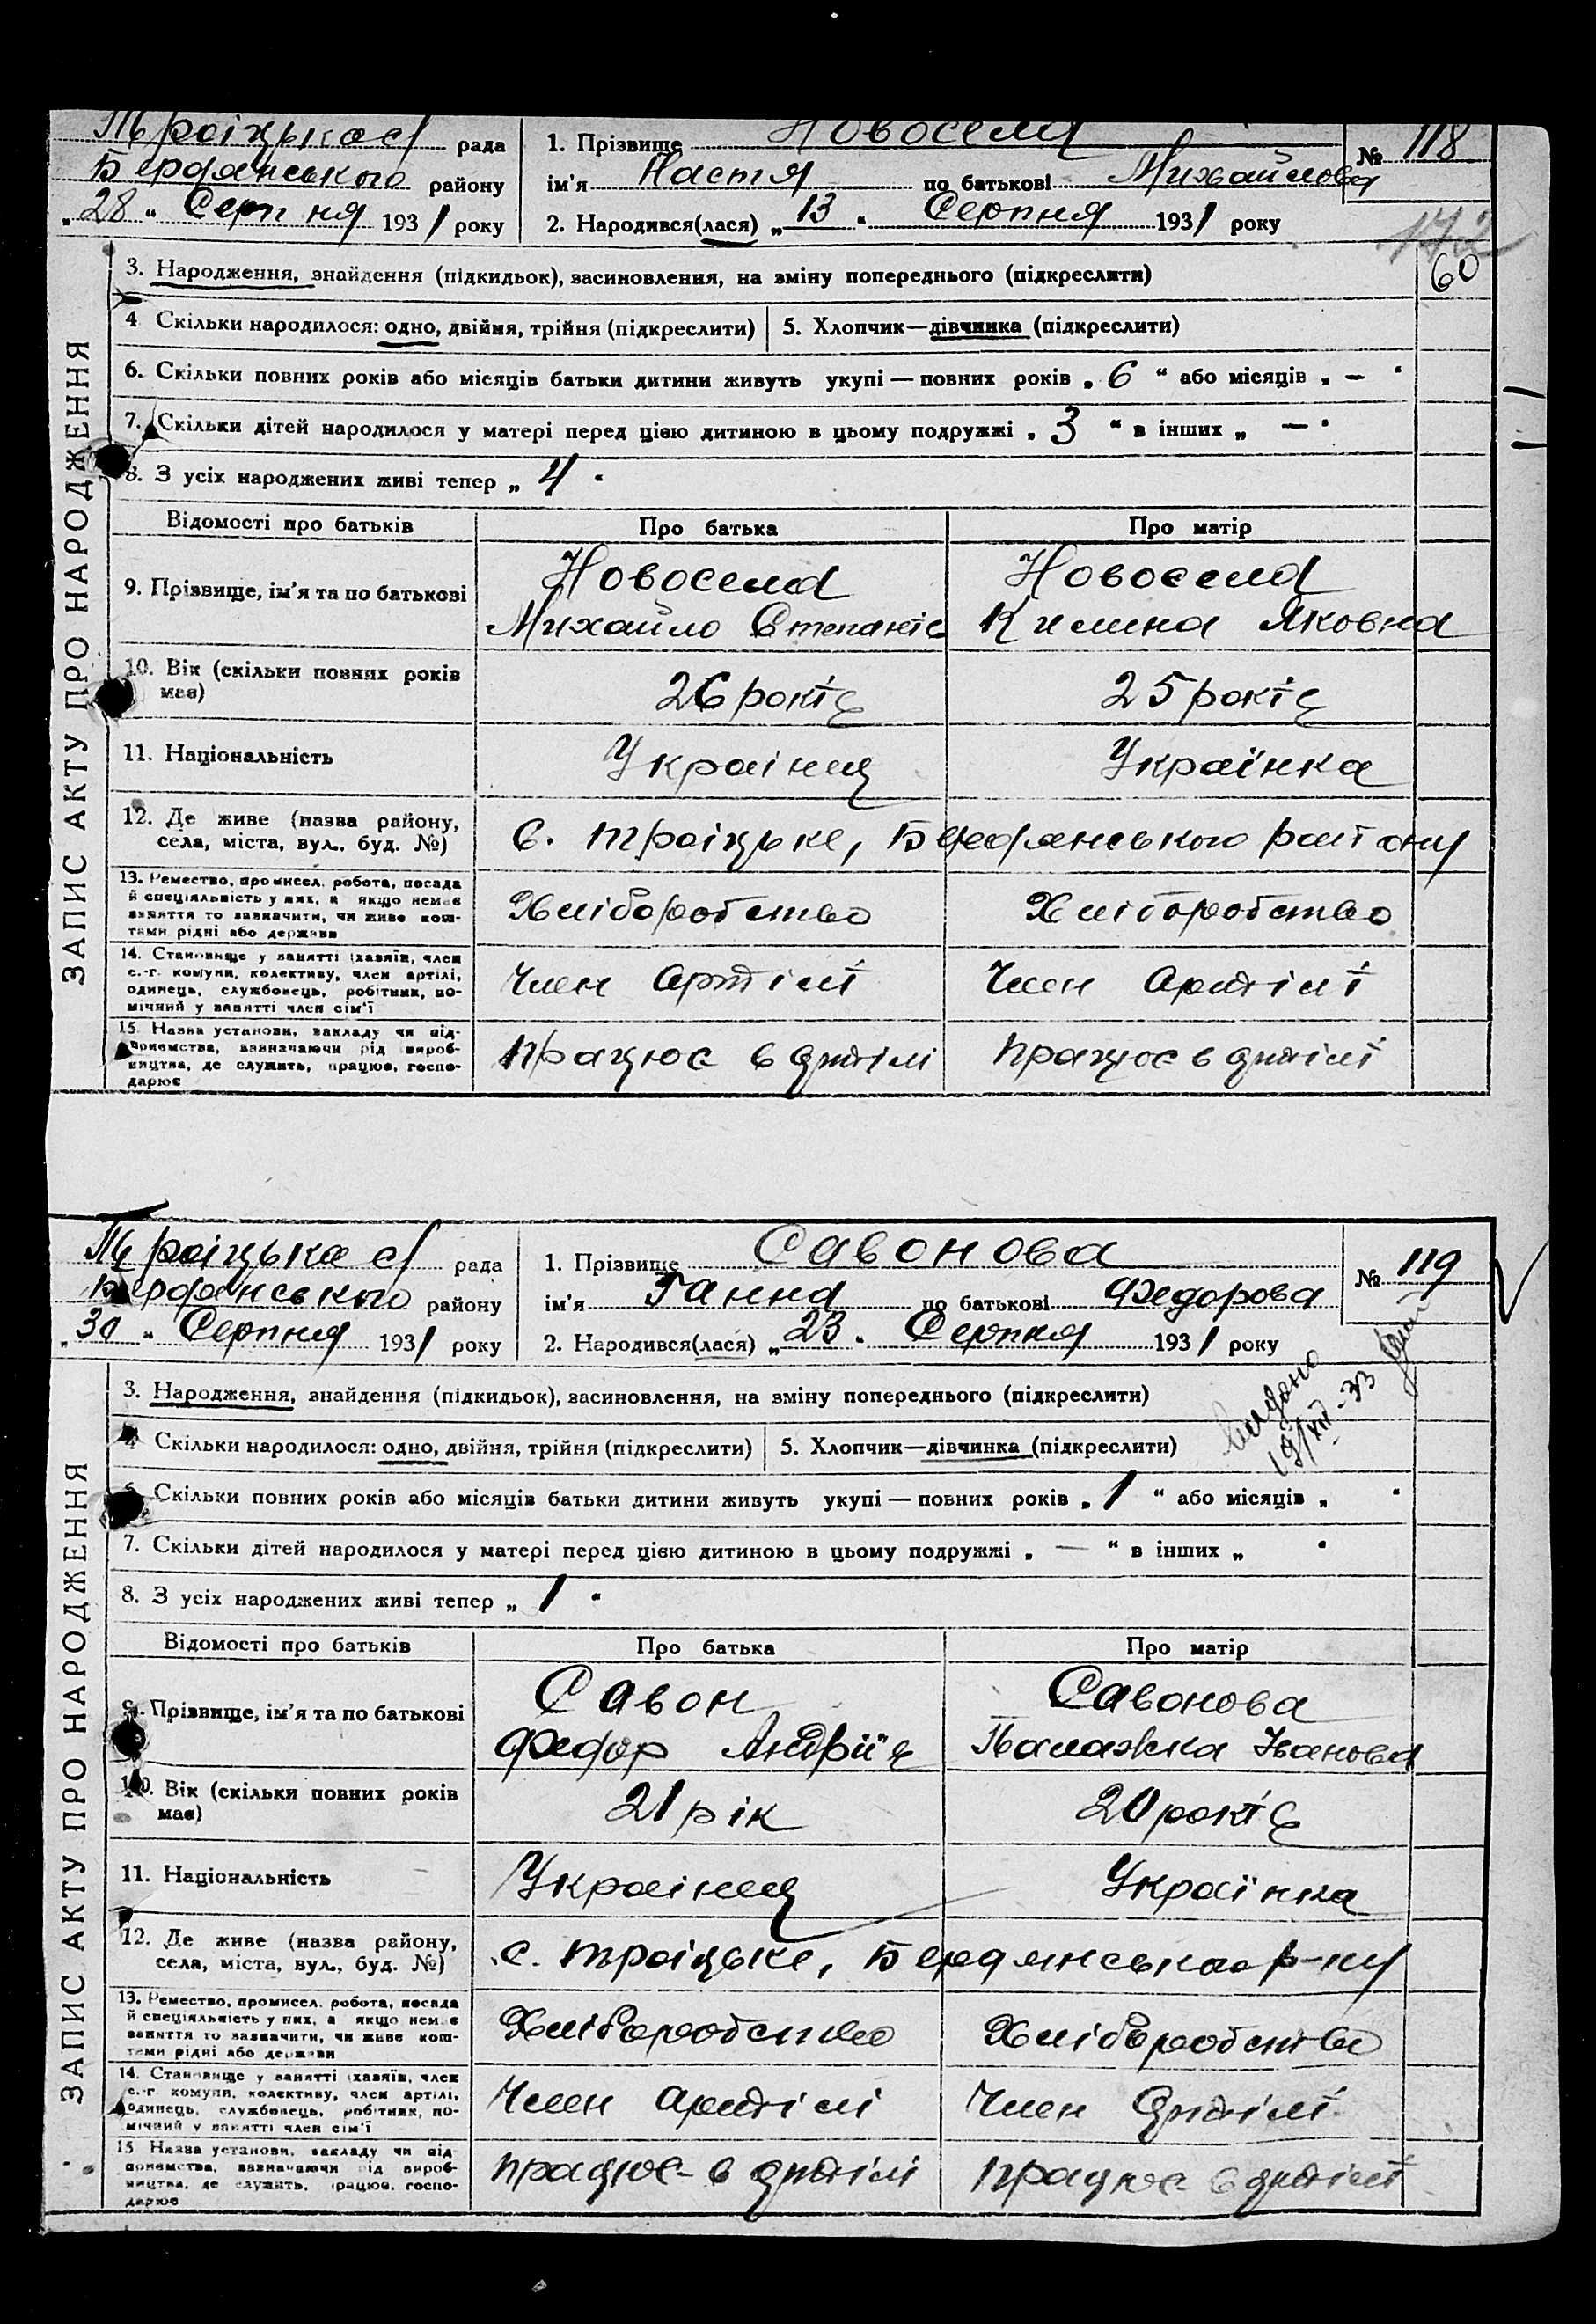 Троїцька с/ рада
Бердянського району
„28“ Серпня 1931 року
1. Прізвище Новосела
ім'я Настя по батькові Михайлова
2. Народився(лася) „13“ Серпня 1931 року
№ 118
60
ЗАПИС АКТУ ПРО НАРОДЖЕННЯ
3. Народження, знайдення (підкидьок), засиновлення, на зміну попереднього (підкреслити)
4 Скільки народилося: одно, двійня, трійня (підкреслити) 5. Хлопчик—дівчинка (підкреслити)
6. Скільки повних років або місяців батьки дитини живуть укупі — повних років „6“ або місяців „—“
7. Скільки дітей народилося у матері перед цією дитиною в цьому подружжі „3“ в інших „—“
8. З усіх народжених живі тепер „4“
Відомості про батьків Про батька Про матір
9. Прізвище, ім'я та по батькові
Новосела Новосела
Михайло Степанів Килина Яковна
10. Вік (скільки повних років
має)
26 років 25 років
11. Національність Українец Українка
12. Де живе (назва району,
села, міста, вул., буд. №)
с. Троїцьке, Бердянського району
13. Ремество, промисел, робота, посада
й спеціяльність у них, а якщо немає
заняття то зазначити, чи живе кош-
тами рідні або держави
Хліборобство Хліборобство
14. Становище у занятті (хазяїн, член
с.-г. комуни, колективу, член артілі,
одинець, службовець, робітник, по-
мічний у занятті член сім'ї
Член артілі Член артілі
15. Назва установи, закладу чи під-
приємства, зазначаючи рід вироб-
ництва, де служить, працює, госпо-
дарює
працює в артілі працює в артілі
Троїцька с/ рада
Бердянського району
„30“ Серпня 1931 року
1. Прізвище Савонова
ім'я Ганна по батькові Федорова
2. Народився(лася) „23“ Серпня 1931 року
№ 119
Видано
19/XII-33
ЗАПИС АКТУ ПРО НАРОДЖЕННЯ
3. Народження, знайдення (підкидьок), засиновлення, на зміну попереднього (підкреслити)
4 Скільки народилося: одно, двійня, трійня (підкреслити) 5. Хлопчик—дівчинка (підкреслити)
Скільки повних років або місяців батьки дитини живуть укупі — повних років „1“ або місяців „ “
7. Скільки дітей народилося у матері перед цією дитиною в цьому подружжі „—“ в інших „ “
8. З усіх народжених живі тепер „1“
Відомості про батьків Про батька Про матір
9. Прізвище, ім'я та по батькові
Савон Савонова
Федор Андріїв Палажка Іванова
10. Вік (скільки повних років
має)
21 рік 20 років
11. Національність Українец Українка
12. Де живе (назва району,
села, міста, вул., буд. №)
с. Троїцьке, Бердянського р-ну
13. Ремество, промисел, робота, посада
й спеціяльність у них, а якщо немає
заняття то зазначити, чи живе кош-
тами рідні або держави
Хліборобство Хліборобство
14. Становище у занятті (хазяїн, член
с.-г. комуни, колективу, член артілі,
одинець, службовець, робітник, по-
мічний у занятті член сім'ї
Член артілі Член артілі
15 Назва установи, закладу чи під-
приємства, зазначаючи рід вироб-
ництва, де служить, працює, госпо-
дарює
працює в артілі працює в артілі